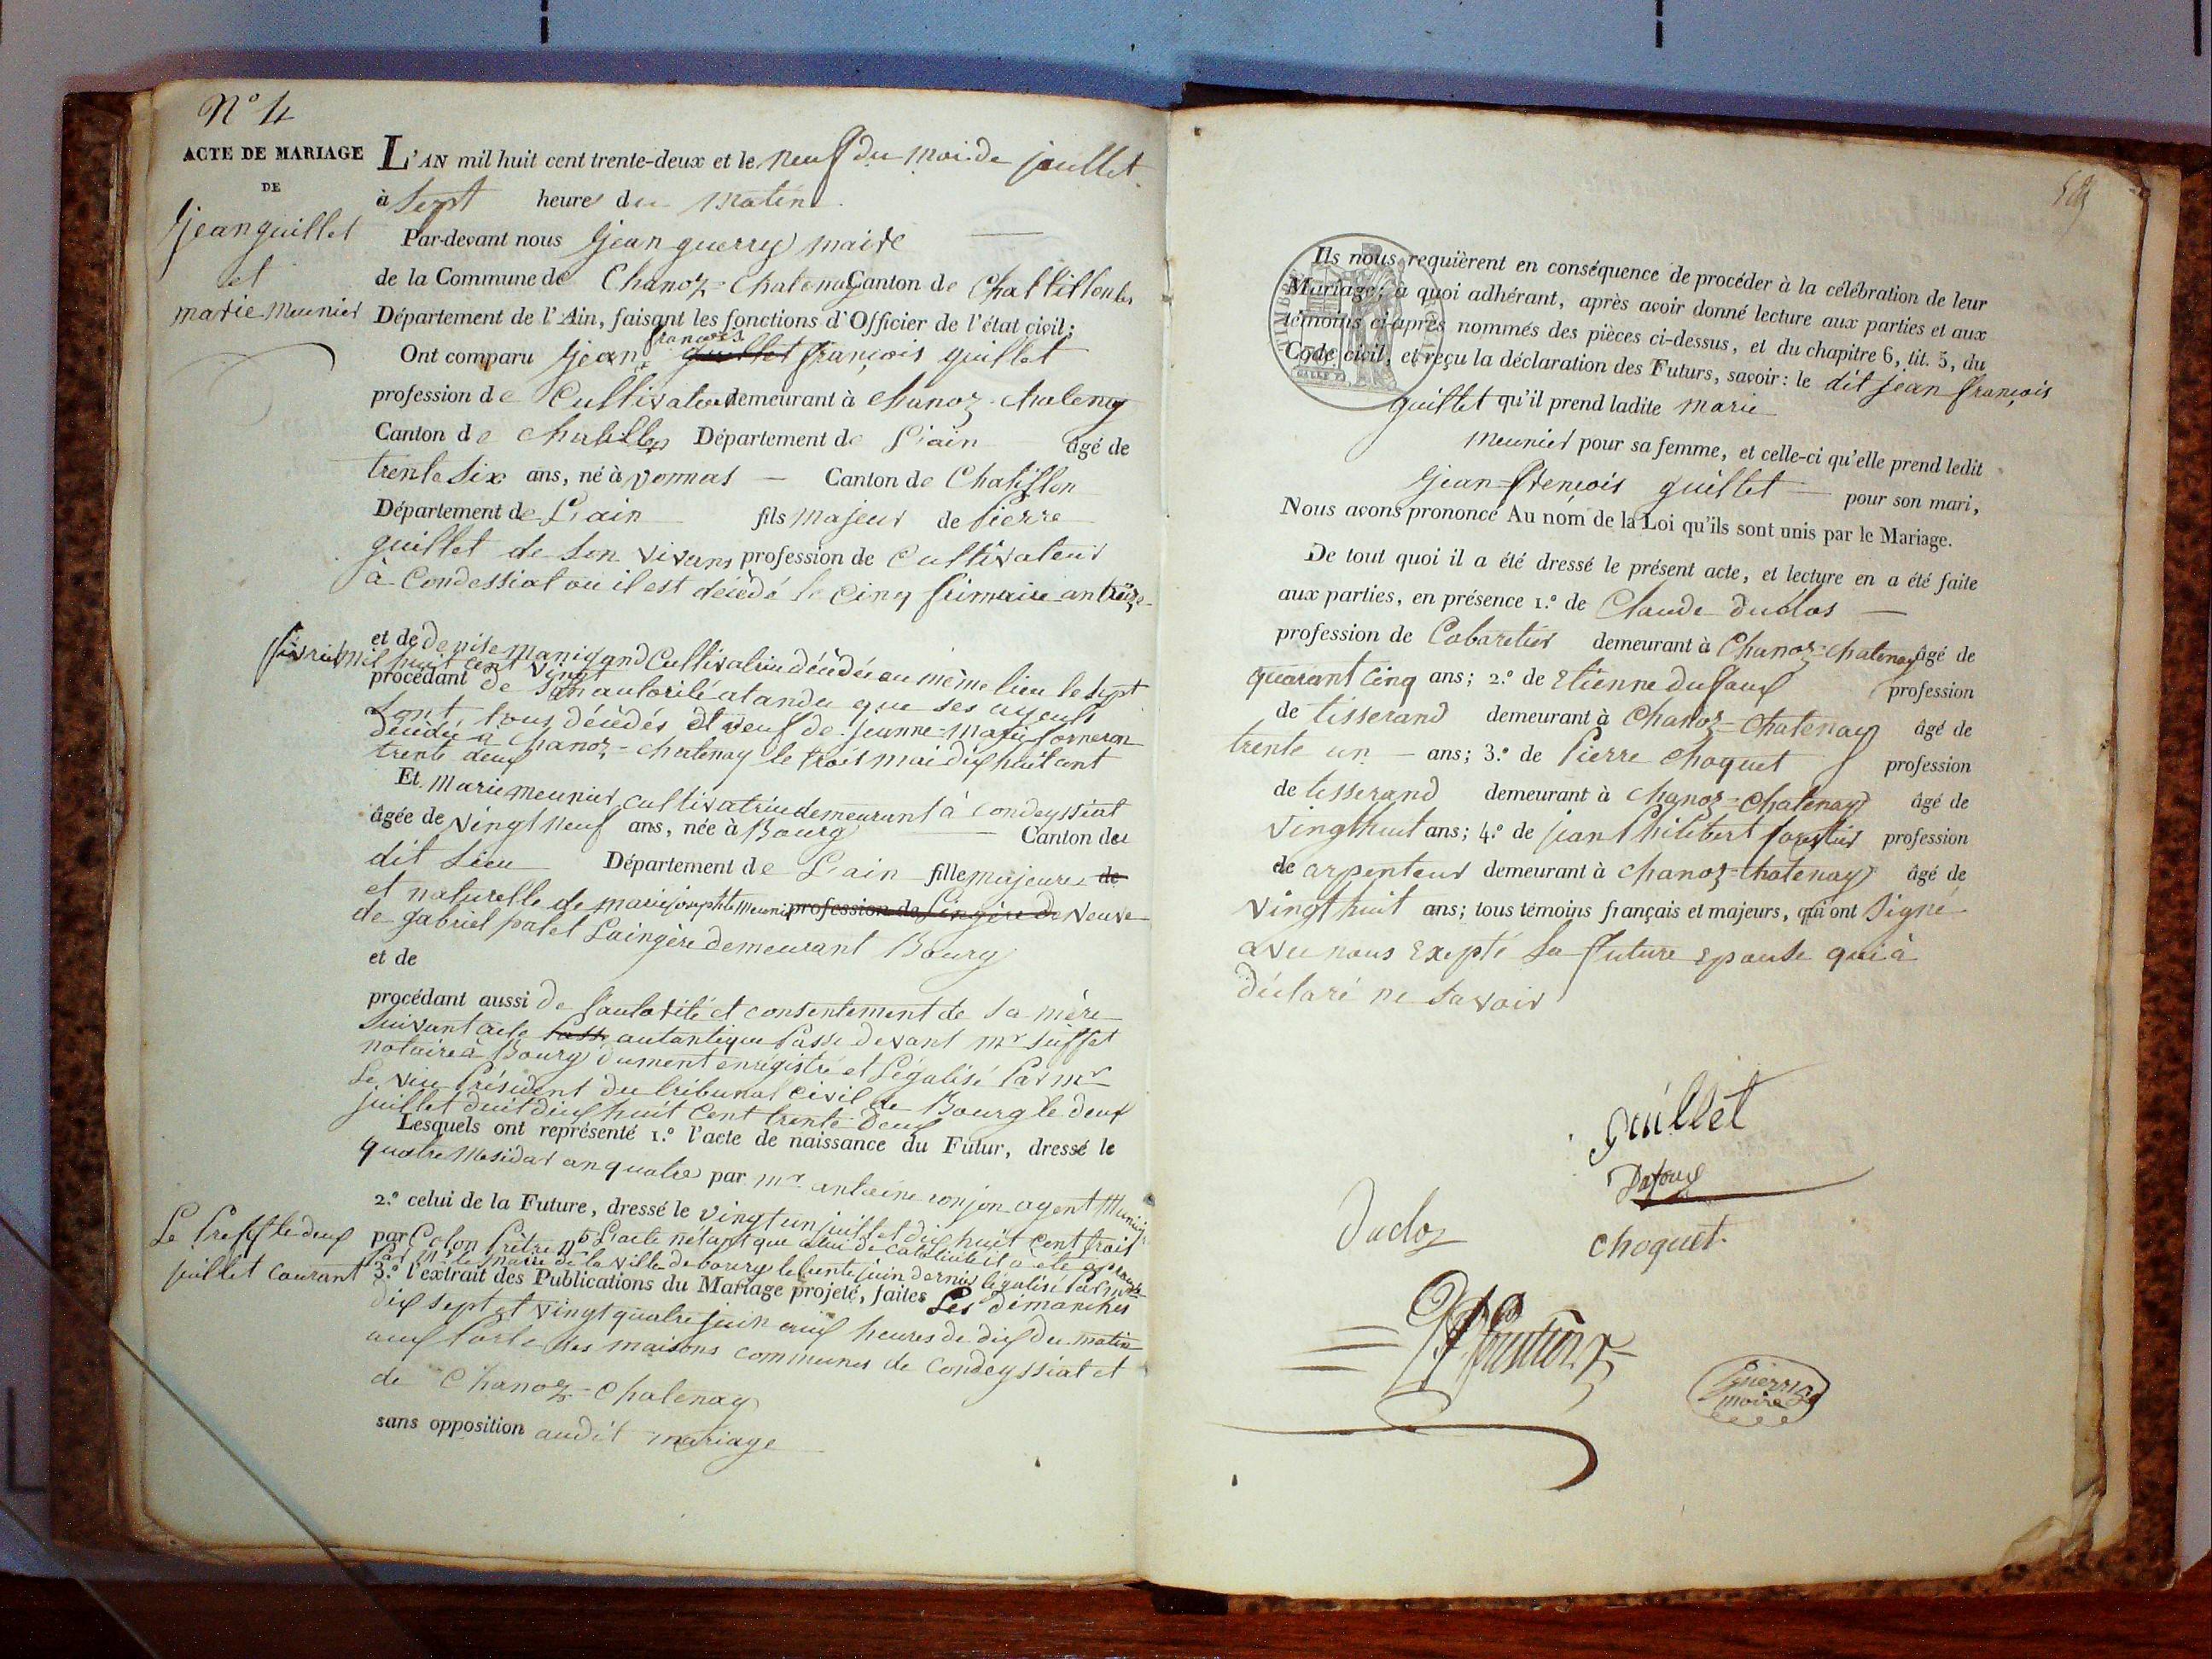 N° 4
ACTE DE MARIAGE
DE
jean guillet
et
marie meunier
L'AN mil huit cent trente-deux et le neuf du moi de juillet
à Sept heures du matin
Par-devant nous jean guerry maire
de la Commune de Chanoz-Chatenay Canton de Chattillon les
Département de l'Ain, faisant les fonctions d'Officier de l'état civil;
françois
Ont comparu jean guillet françois guillet
profession de Cultivateur demeurant à Chanoz-Chateney
Canton de Chatillon Département de L'ain âgé de
trente Six ans, né à vonnas — Canton de Chatillon
Département de L'ain fils majeur de Pierre
guillet de Son vivans profession de Cultivateur
à Condessiat ou il est décédé le Cinq frimaire an treize
et de denise manigand Cultivatrice décédée au même lieu le Sept
février mil huit cent vingt
procédant de Son autorité atandu que ses ayeuls
Sont tous décédés et veuf de jeanne-marie forneron
décédée à Chanoz-Chatenay le trois mai dix huit cent
trente deux
Et marie meunier cultivatrice demeurant à Condeyssiat
âgée de vingt neuf ans, née à Bourg — Canton du
dit Lieu Département de L'ain fille majeure de
et naturelle de marie josephte meunier profession de Lingère de veuve
de gabriel palet Laingère demeurant Bourg
et de
procédant aussi de l'autorité et consentement de Sa mère
Suivant acte Passé autantique Passé devant mr
notaire à Bourg dument enregistré et Légalisé Par mr
Le vice Président du tribunal civil de Bourg le deux
juillet dix huit Cent trente deux
Lesquels ont représenté 1.° l'acte de naissance du Futur, dressé le
quatre Mesidor an quatre par mr antoine ronjon agent
2.° celui de la Future, dressé le vingt un juillet dix huit cent trois
par Colon Prêtre L'acte n'étant que celui de il a été
Par mr le maire de la ville de bourg le trente juin dernier légalisé Par mr
Le Preffet le deux
juillet Courant
3.° l'extrait des Publications du Mariage projeté, faites Les dimanches
dix sept et vingt quatre juin aux heures de dix du matin
aux Porte des maisons communes de Condeyssiat et
de Chanoz-Chatenay
sans opposition audit mariage
Ils nous requièrent en conséquence de procéder à la célébration de leur
Mariage; à quoi adhérant, après avoir donné lecture aux parties et aux
témoins ci-après nommés des pièces ci-dessus, et du chapitre 6, tit. 5, du
Code civil, et reçu la déclaration des Futurs, savoir: le dit jean françois
guillet qu'il prend ladite marie
meunier pour sa femme, et celle-ci qu'elle prend ledit
jean-frençois guillet — pour son mari,
Nous avons prononcé Au nom de la Loi qu'ils sont unis par le Mariage.
De tout quoi il a été dressé le présent acte, et lecture en a été faite
aux parties, en présence 1.° de Claude duclos —
profession de Cabaretier demeurant à Chanoz-chatenay âgé de
quarant Cinq ans; 2.° de Etienne dufaux profession
de tisserand demeurant à Chanoz-Chatenay âgé de
trente un — ans; 3.° de Pierre Choquet profession
de tisserand demeurant à Chanoz-Chatenay âgé de
vingt huit ans; 4.° de jean Philibert forestier profession
de arpenteur demeurant à Chanoz-Chatenay âgé de
vingt huit ans; tous témoins français et majeurs, qui ont Signé
avec nous Exepté La future Epouse qui à
déclaré ne Savoir
guillet
Dufoux
Ducloz
choquet
Guerry
maire